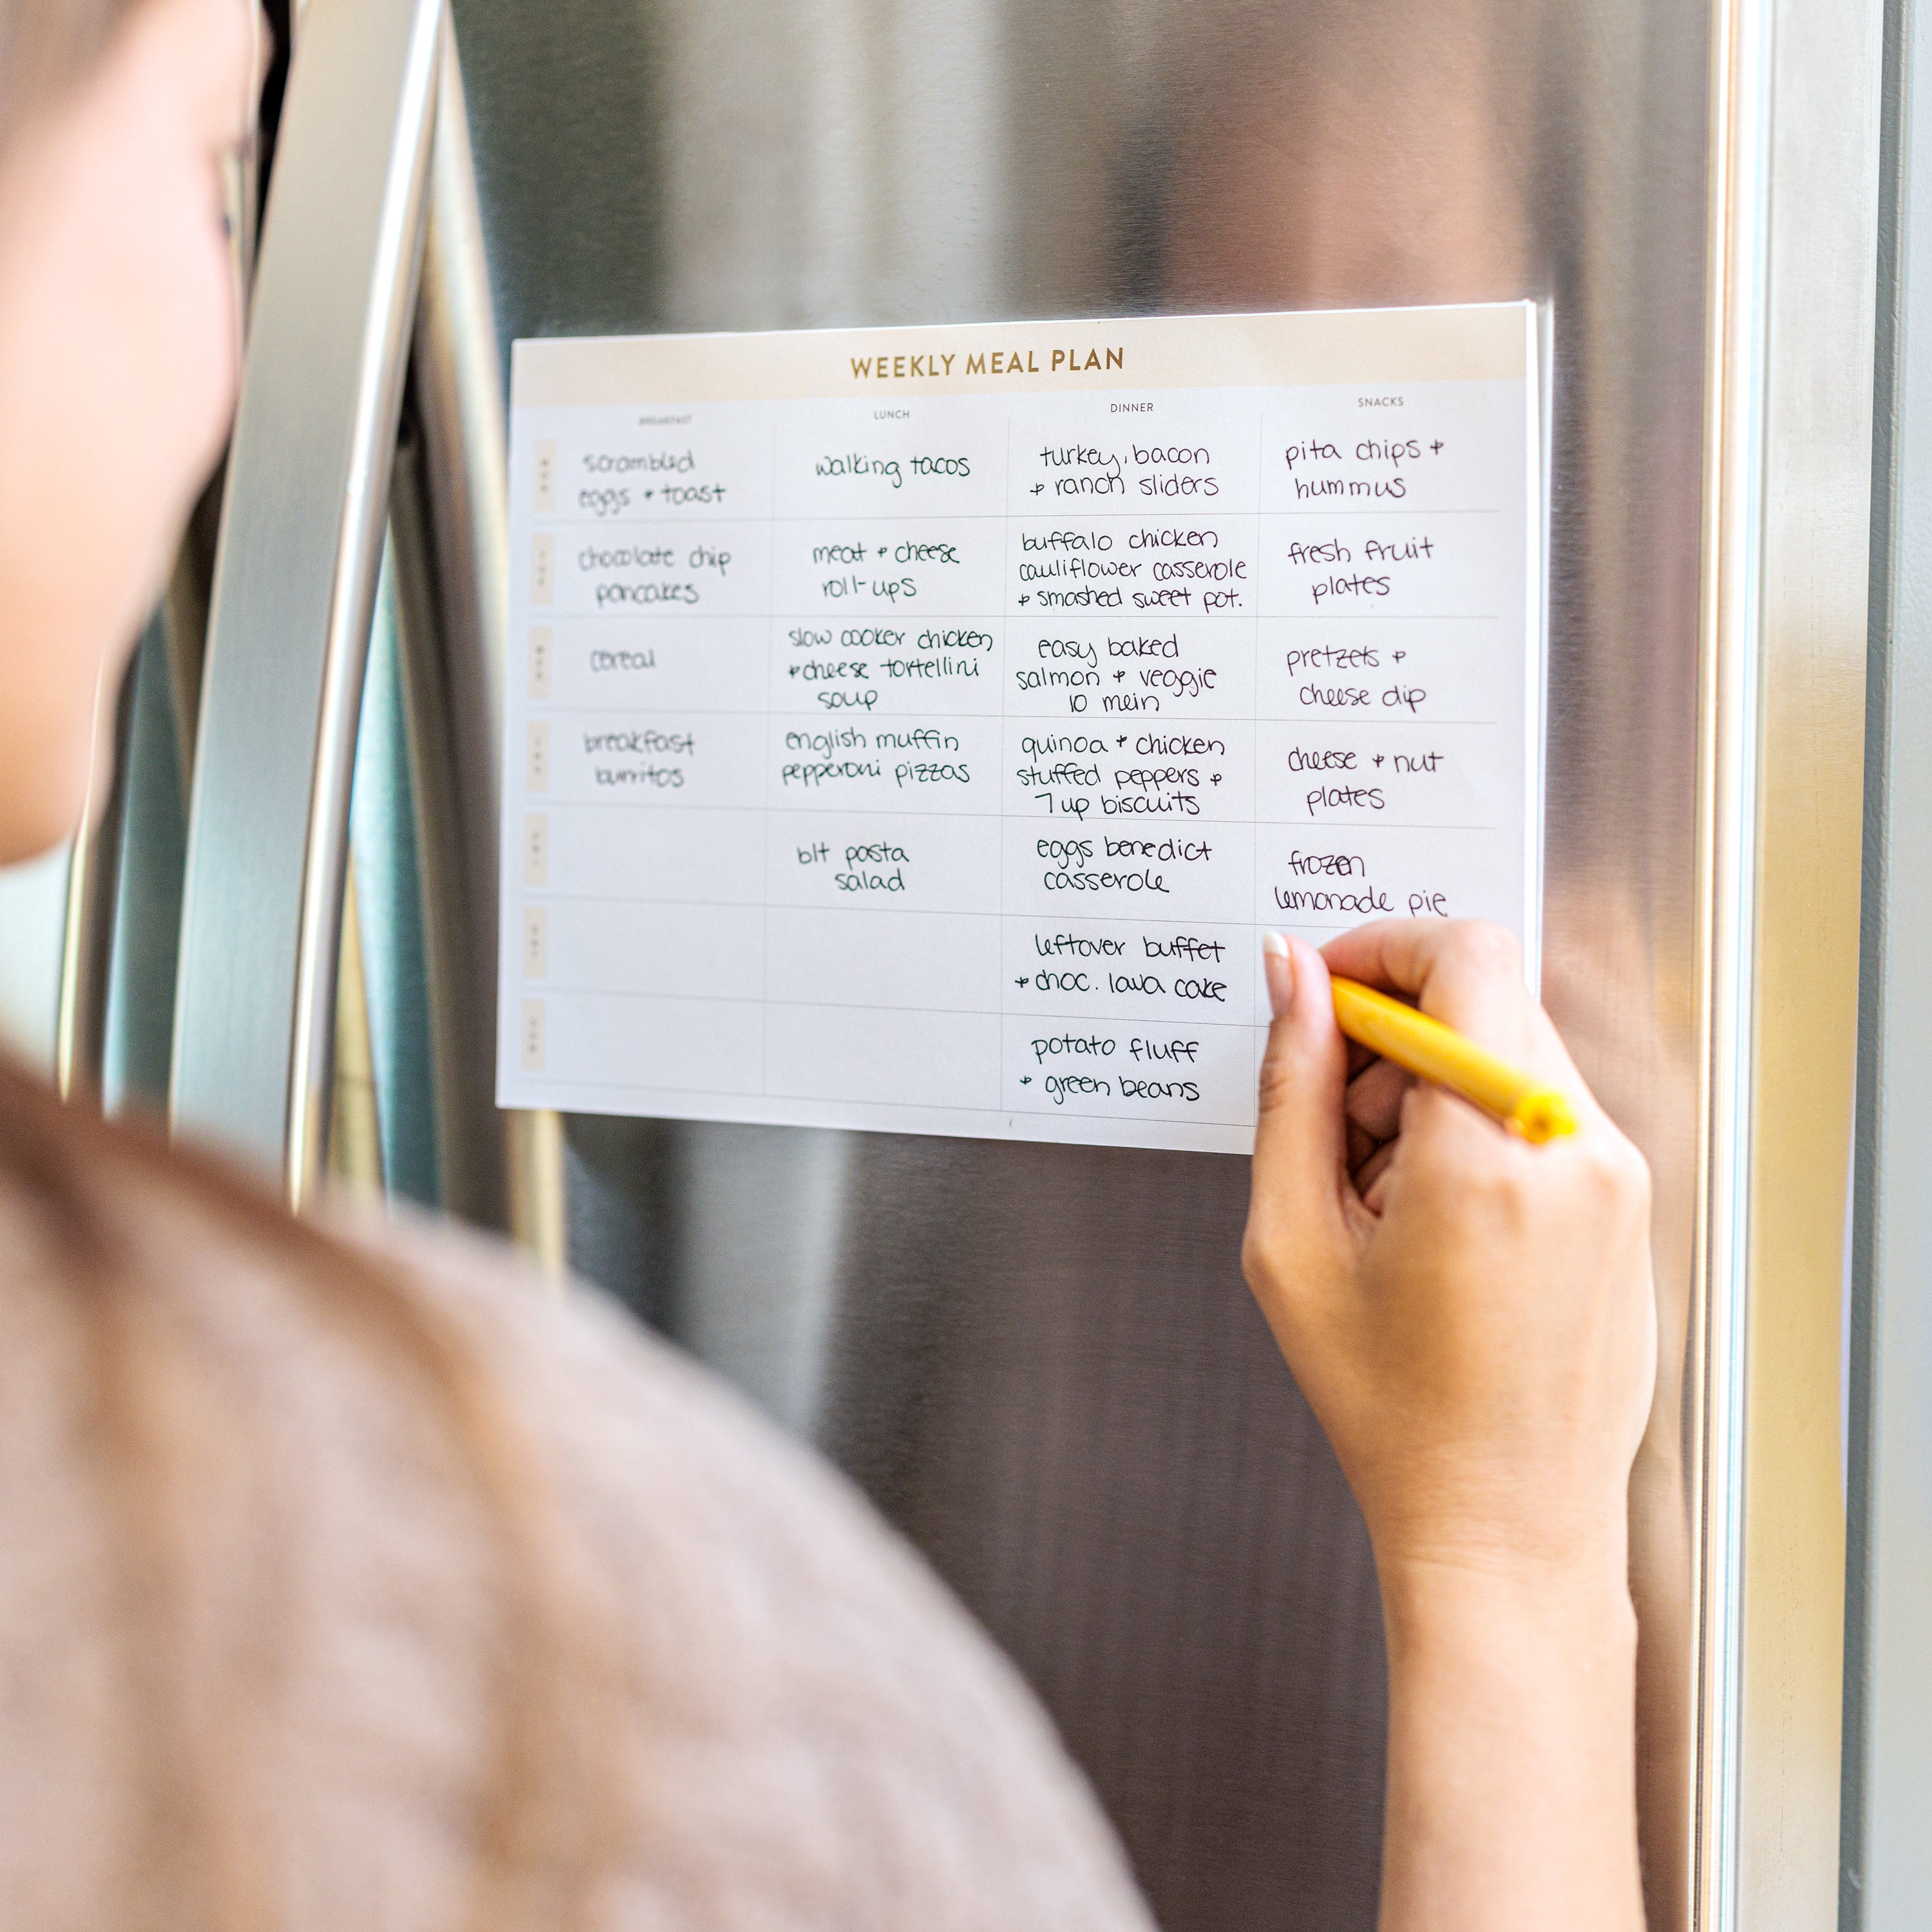 WEEKLY MEAL PLAN
BREAKFAST
LUNCH
DINNER
SNACKS
scrambled
eggs + toast
walking tacos
turkey, bacon
+ ranch sliders
pita chips +
hummus
chocolate chip
pancakes
meat + cheese
roll-ups
buffalo chicken
cauliflower casserole
+ smashed sweet pot.
fresh fruit
plates
cereal
slow cooker chicken
+ cheese tortellini
soup
easy baked
salmon + veggie
lo mein
pretzels +
cheese dip
breakfast
burritos
english muffin
pepperoni pizzas
quinoa + chicken
stuffed peppers +
7 up biscuits
cheese + nut
plates
blt pasta
salad
eggs benedict
casserole
frozen
lemonade pie
leftover buffet
+ choc. lava cake
potato fluff
+ green beans